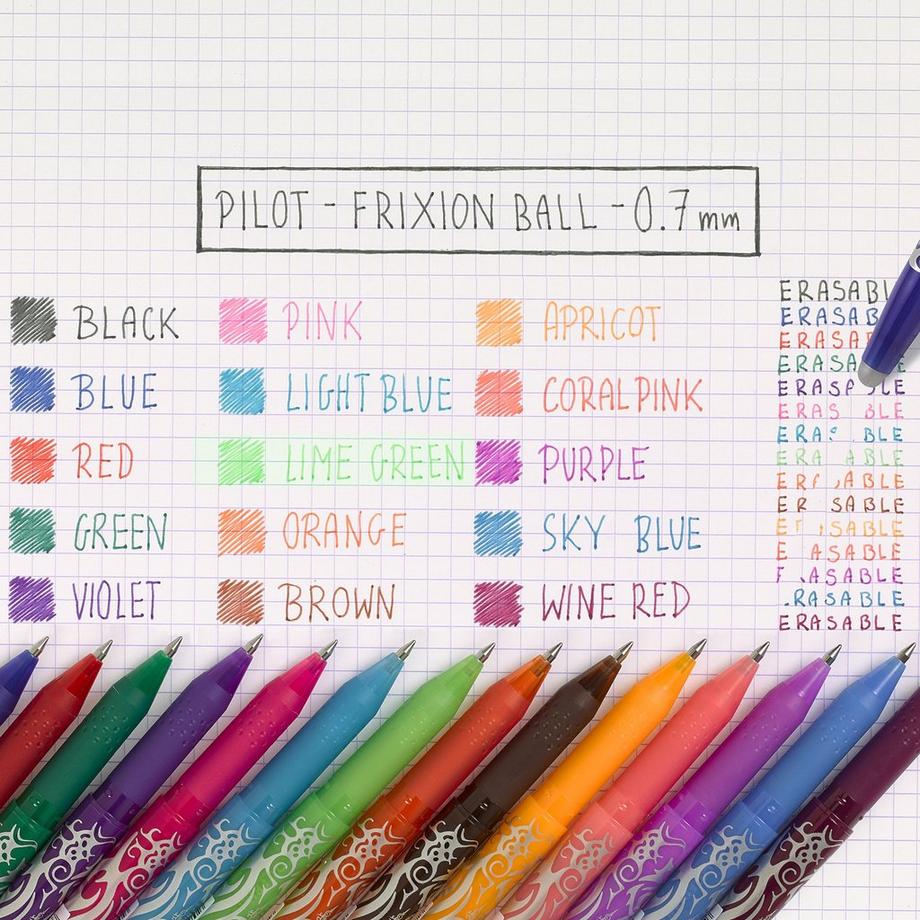 PILOT - FRIXION BALL - 0.7 mm
BLACK
BLUE
RED
GREEN
VIOLET
PINK
LIGHT BLUE
LIME GREEN
ORANGE
BROWN
APRICOT
CORAL PINK
PURPLE
SKY BLUE
WINE RED
ERASABL
ERASAB
ERASA
ERASA E
ERASA LE
ERAS BLE
ERA BLE
ERA ABLE
ER ABLE
ER SABLE
E SABLE
E ASABLE
ASABLE
RASABLE
ERASABLE